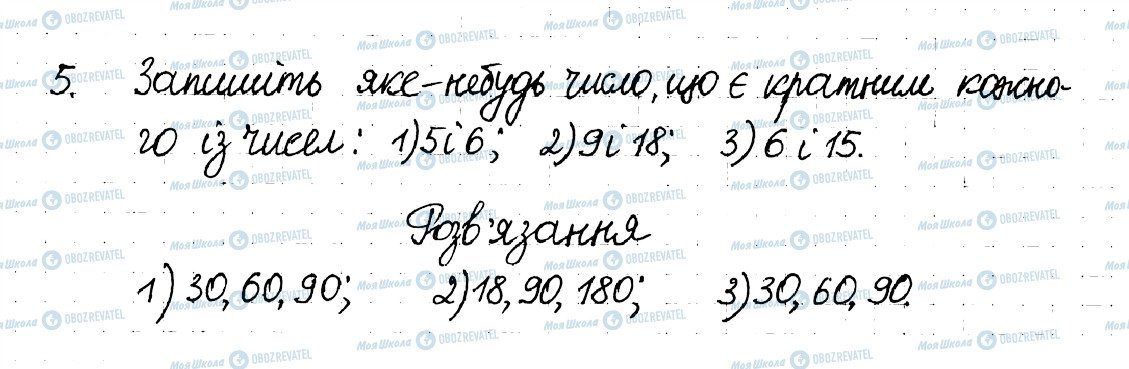 5. Запишіть яке-небудь число, що є кратним кожно-
го із чисел: 1) 5 і 6; 2) 9 і 18; 3) 6 і 15.
Розв'язання
1) 30, 60, 90; 2) 18, 90, 180; 3) 30, 60, 90.